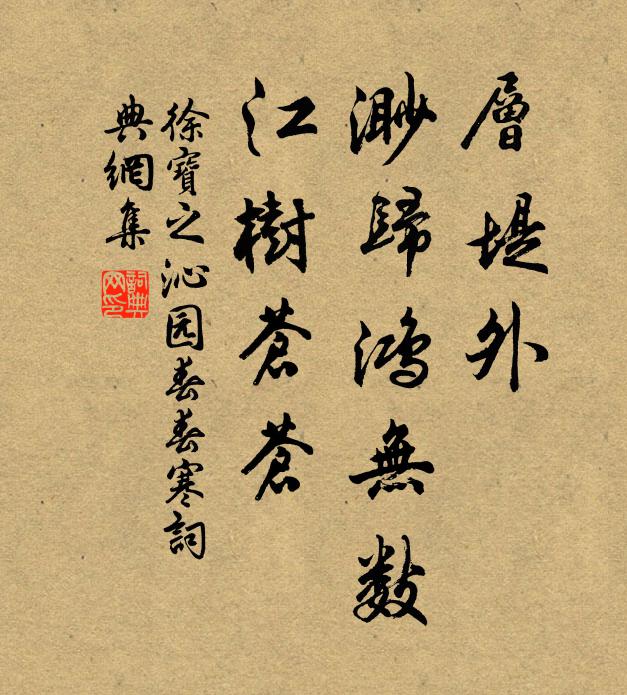 層堤外
渺歸鴻無数
江樹蒼蒼
徐寶之沁园春春寒詞
典網集
詞典
网印